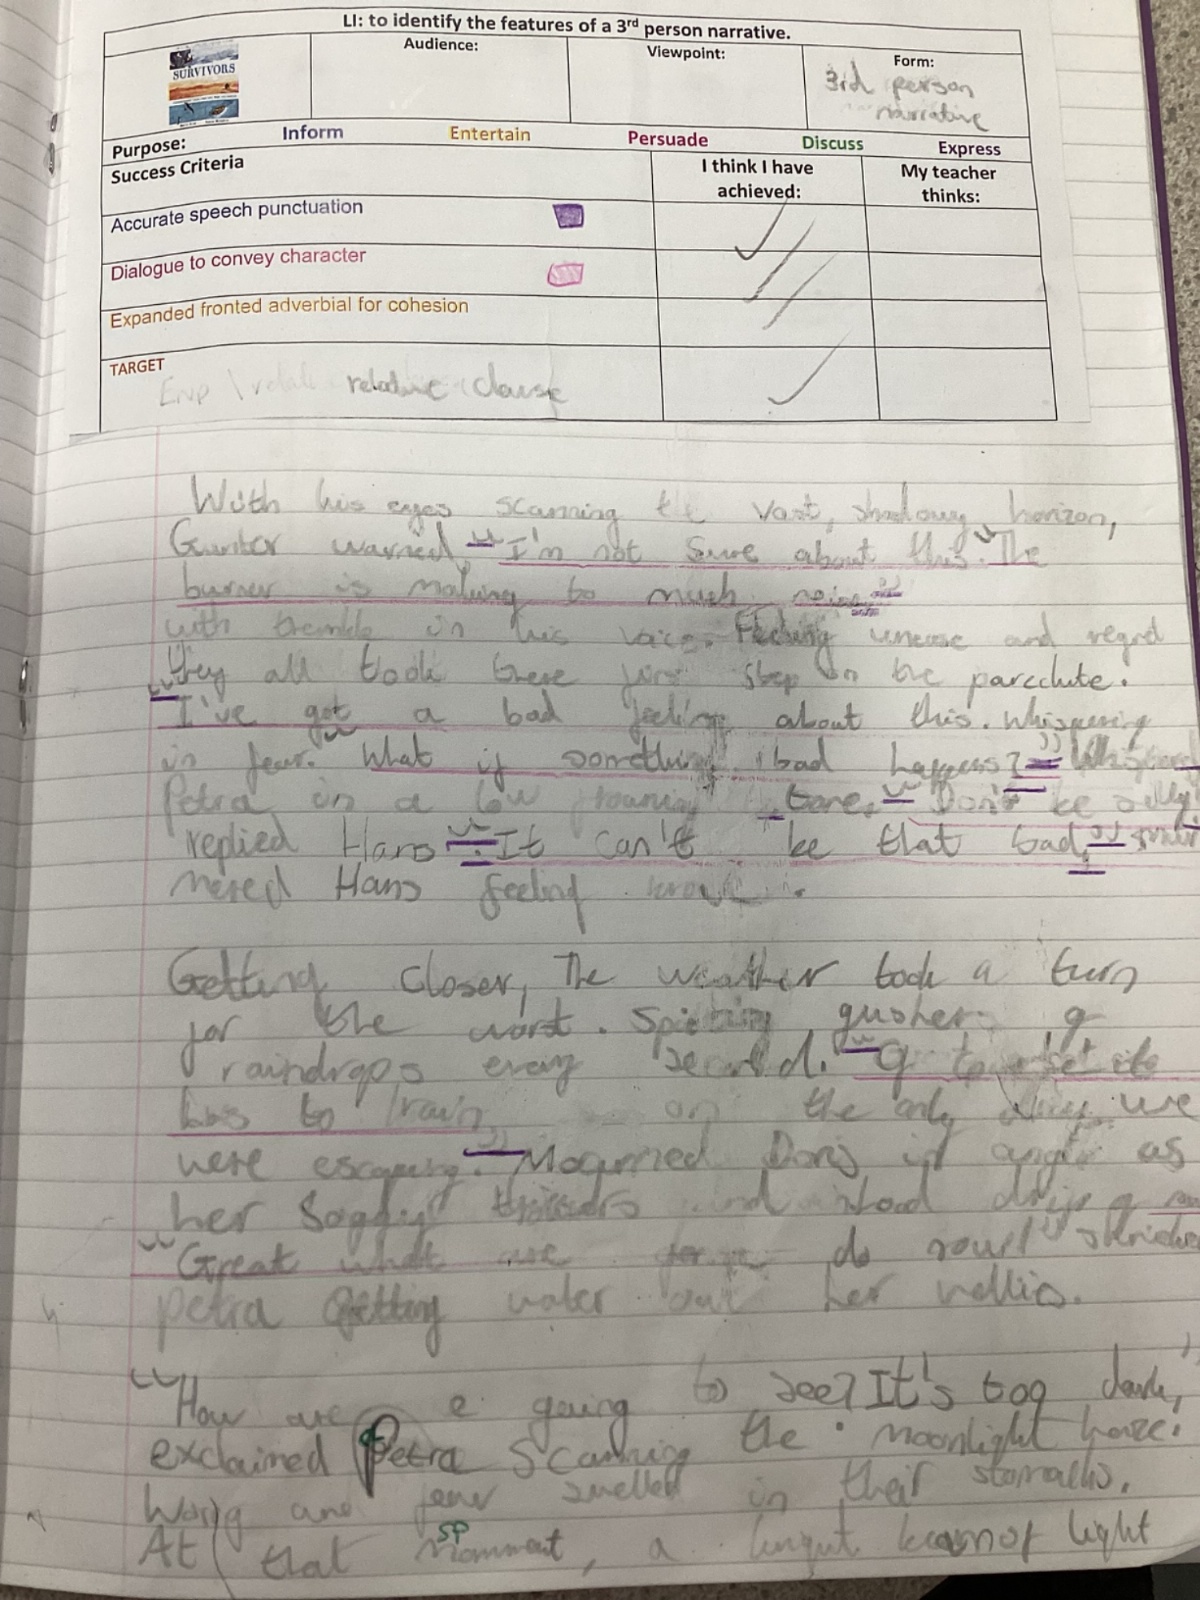 LI: to identify the features of a 3rd person narrative.
SURVIVORS
Audience:
Viewpoint:
Form:
3rd person
narrative
Purpose: Inform Entertain Persuade Discuss Express
Success Criteria
I think I have
achieved:
My teacher
thinks:
Accurate speech punctuation
Dialogue to convey character
Expanded fronted adverbial for cohesion
TARGET
relative clause
With his eyes scanning the vast, shadowy horizon,
Gunter warned, "I'm not sure about this. The
burner is making to much noise"
with tremble in his voice. Feeling unease and regret
they all took there first step on the
"I've got a bad feeling about this. Whispering
in fear. "What if something bad happens?"
Petra in a low tone, "Don't be silly"
replied Hans "It can't be that bad,"
mered Hans feeling
Getting closer, The weather took a turn
for the worst. gushers of
raindrops every second.
has to rain on the only we
were escaping." Mourned Doris in anger as
her soggy and
"Great what are to do now!"
petra getting water out her wellis.
"How are going to see? It's too dark,"
exclaimed Petra Scanning the moonlight haze.
Worry and fear in their
SP
At that Momment, a of light